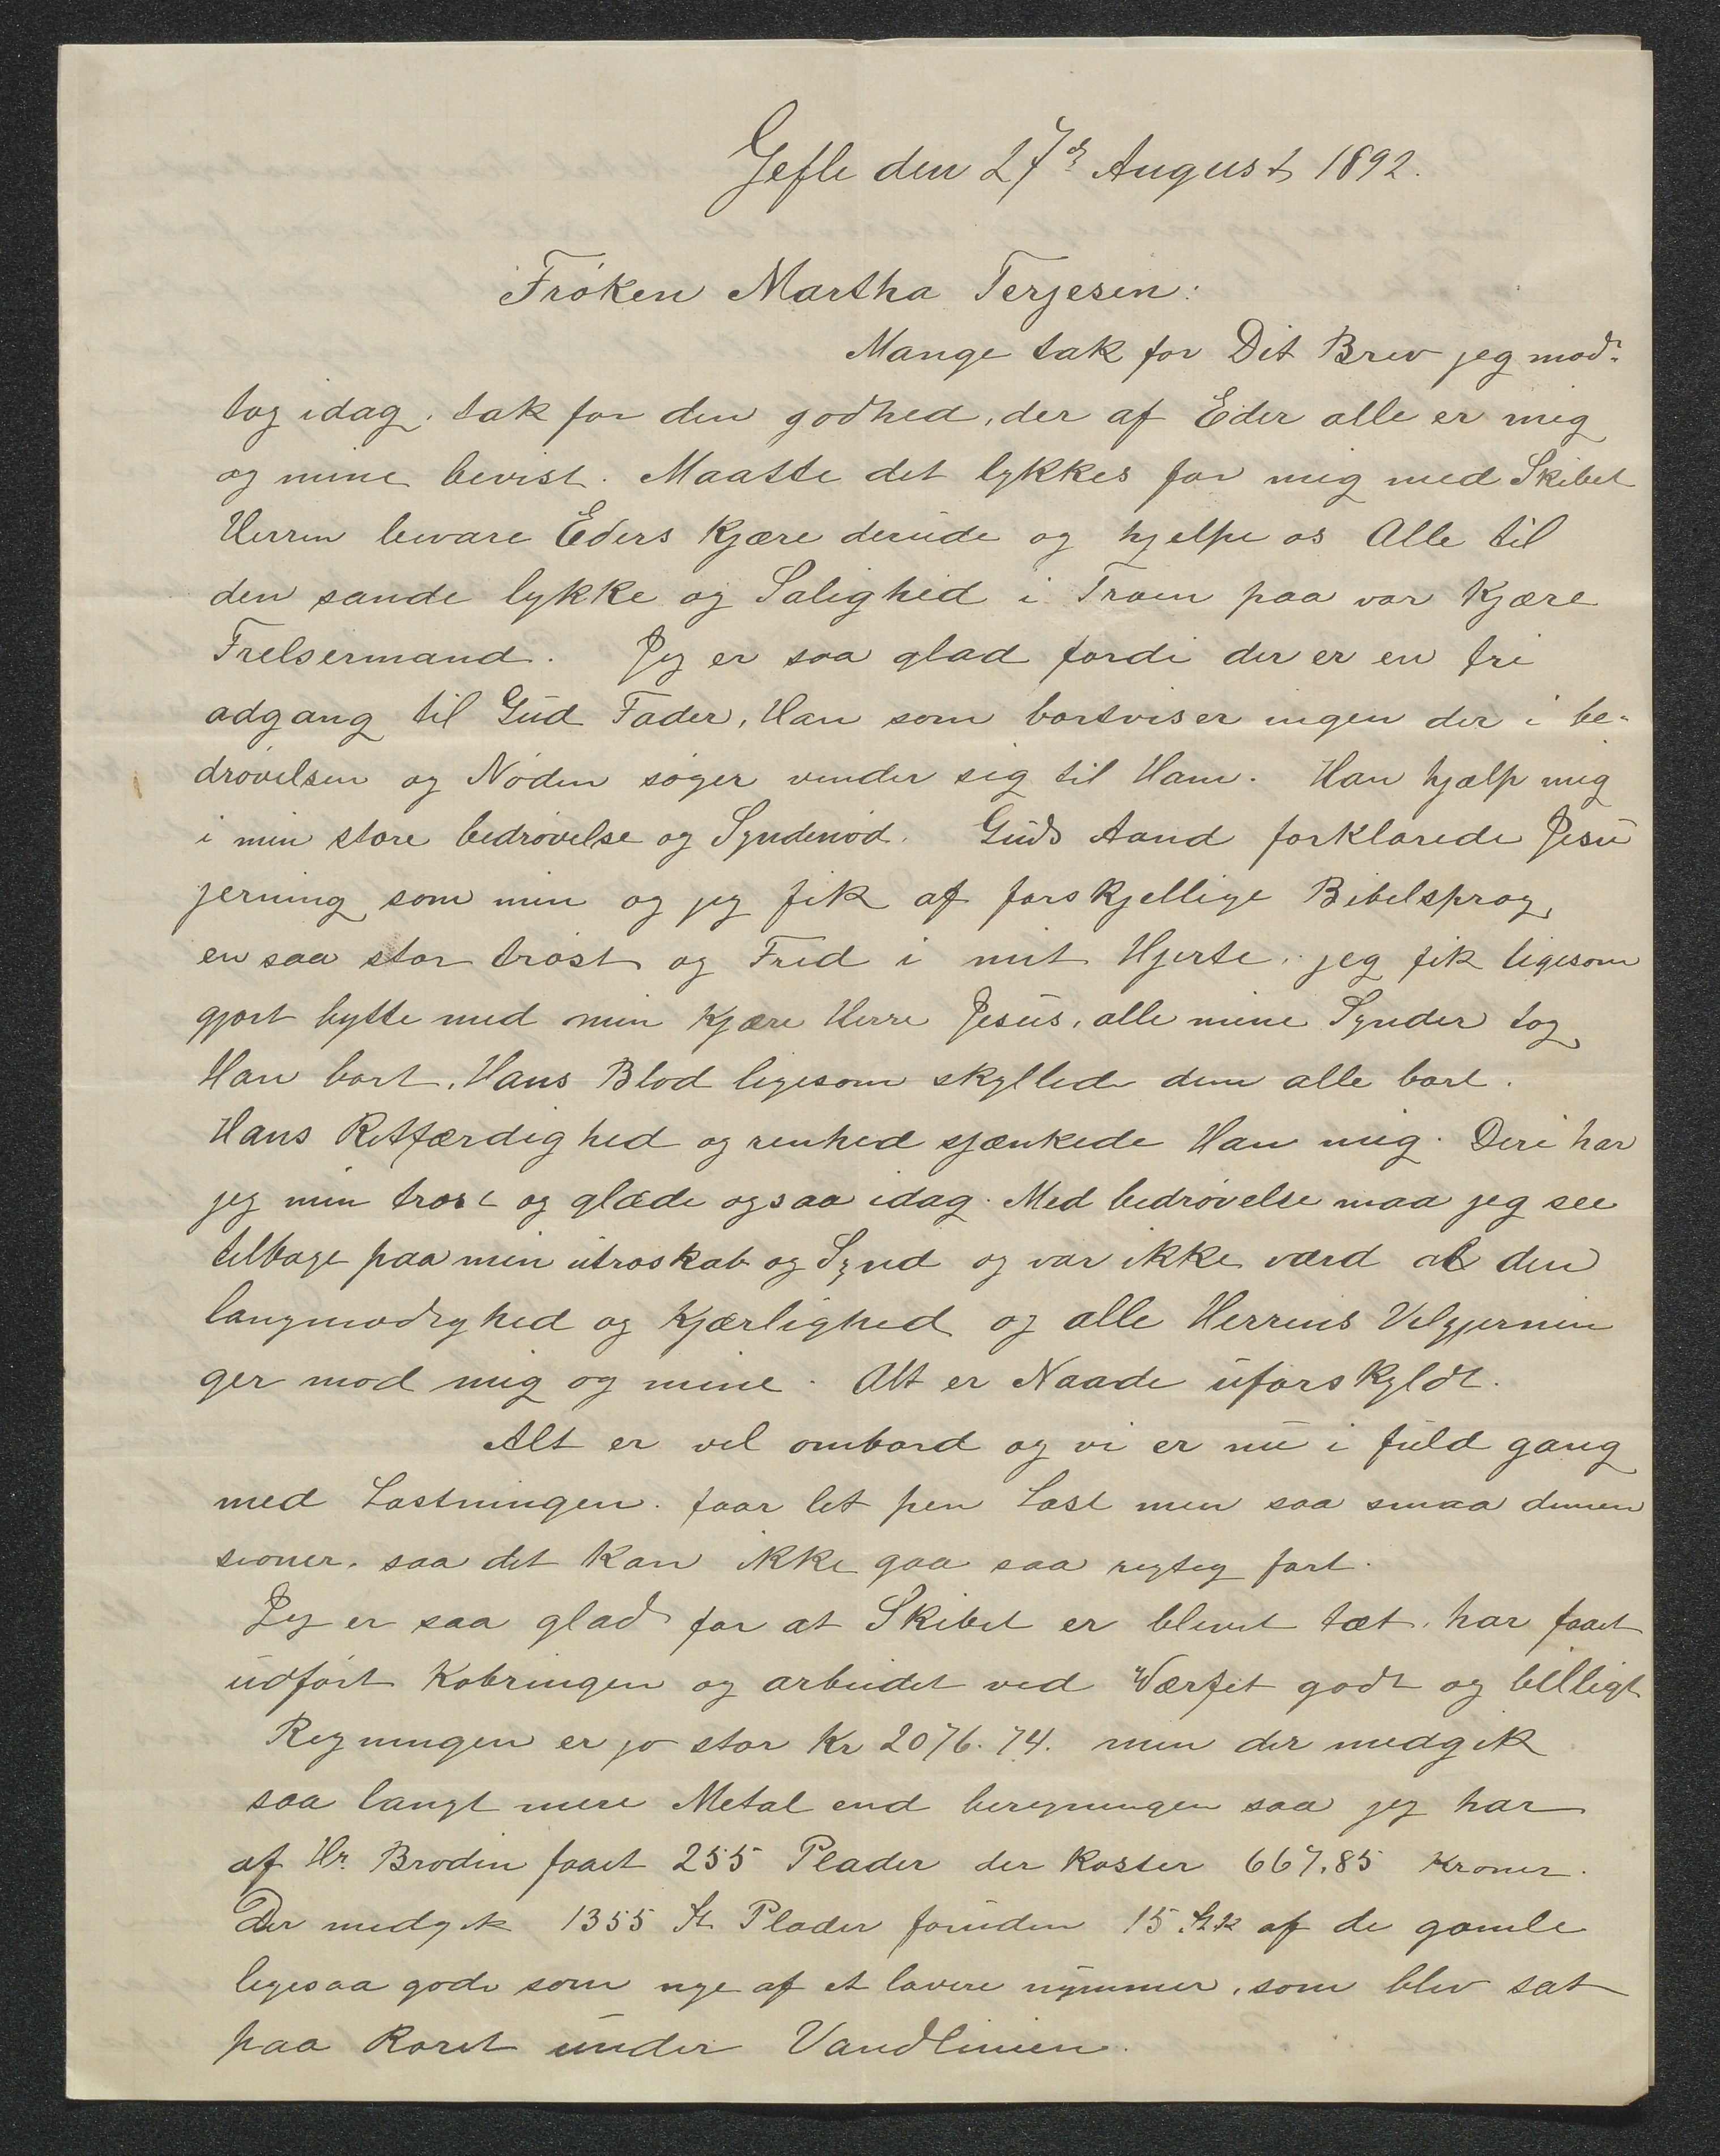 Gefle den 27de August 1892.
Frøken Martha Terjesen:
Mange tak for Dit Brev jeg mod-
tog idag, tak for den godhed, der af Eder alle er mig
og mine bevist. Maatte det lykkes for mig med Skibet
Herren bevare Eders Kjære derude og hjelpe os Alle til
den sande lykke og Salighed i Troen paa vor Kjære
Frelsermand. Jeg er saa glad fordi der er en fri
adgang til Gud Fader, Han som bortviser ingen der i be-
drøvelsen og Nøden søger vender sig til Ham. Han hjalp mig
i min store bedrøvelse og Syndenød. Guds Aand forklarede Jesu
jerning som min og jeg fik af forskjellige Bibelsprog,
en saa stor trøst og Fred i mit Hjerte, jeg fik ligesom
gjort bytte med min Kjære Herre Jesus, alle mine Synder tog
Han bort, Hans Blod ligesom skyllede dem alle bort.
Hans Retfærdighed og renhed sjænkede Han mig. Deri har
jeg min trøst og glæde ogsaa idag. Med bedrøvelse maa jeg see
tilbage paa min utroskab og Synd og var ikke værd al den
langmodighed og Kjærlighed og alle Herrens Velgjernin
ger mod mig og mine. Alt er Naade uforskyldt.
Alt er vel ombord og vi er nu i fuld gang
med Lastningen. faar let pen Last men saa smaa dimen
sioner, saa det kan ikke gaa saa rigtig fort.
Jeg er saa glad for at Skibet er blevet tæt, har faaet
udført Kobringen og arbeidet ved Værfet godt og billigt
Regningen er jo stor Kr 2076.74. men der medgik
saa langt mere Metal end beregningen saa jeg har
af Hr. Brodin faaet 255 Plader der koster 667,85 Kroner.
Der medgik 1355 St Plader foruden 15 Stk af de gamle
ligesaa gode som nye af et lavere nummer, som blev sat
paa Roret under Vandlinien.